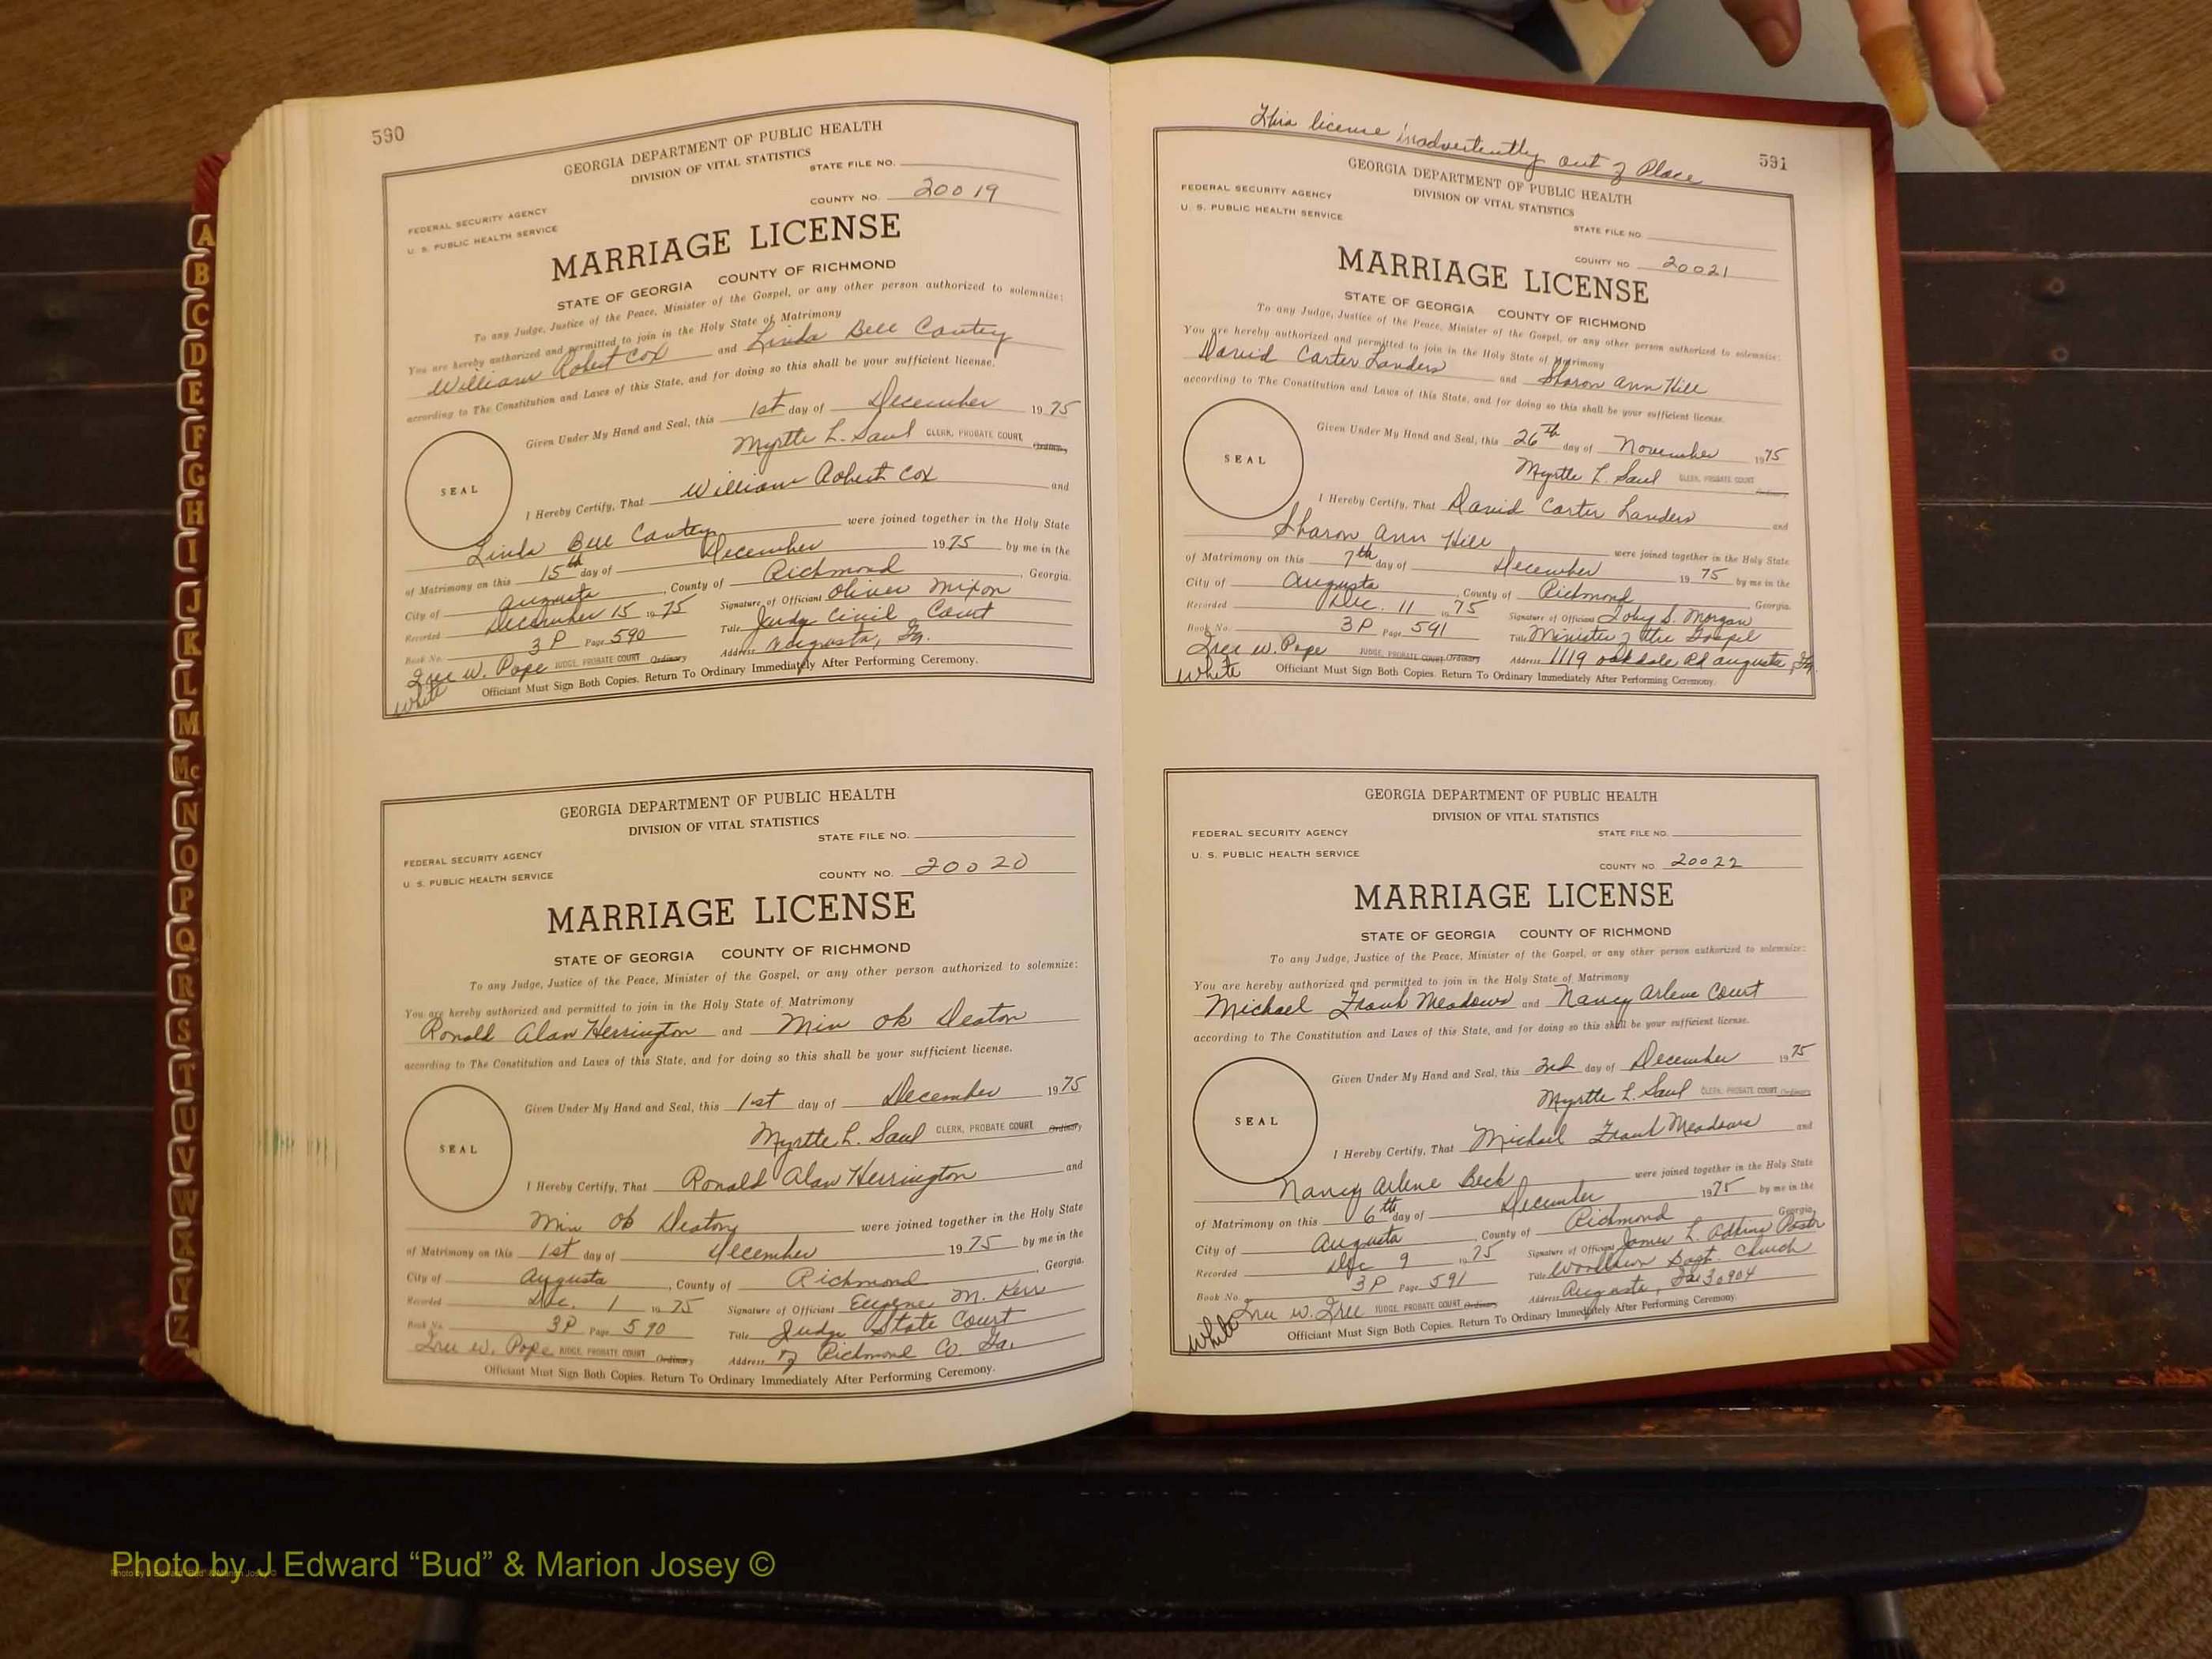 590
GEORGIA DEPARTMENT OF PUBLIC HEALTH
DIVISION OF VITAL STATISTICS
STATE FILE NO.
FEDERAL SECURITY AGENCY
U. S. PUBLIC HEALTH SERVICE
COUNTY NO. 20019
MARRIAGE LICENSE
STATE OF GEORGIA COUNTY OF RICHMOND
To any Judge, Justice of the Peace, Minister of the Gospel, or any other person authorized to solemnize:
You are hereby authorized and permitted to join in the Holy State of Matrimony
William Robert Cox and Linda Bell Cantey
according to The Constitution and Laws of this State, and for doing so this shall be your sufficient license.
Given Under My Hand and Seal, this 1st day of December 1975
Myrtle L. Saul CLERK, PROBATE COURT Ordinary
SEAL
I Hereby Certify, That William Robert Cox and
Linda Bell Cantey were joined together in the Holy State
of Matrimony on this 15th day of December 1975 by me in the
City of Augusta, County of Richmond, Georgia.
Recorded December 15 1975 Signature of Officiant Oliver Mixon
Book No. 3P Page 590 Title Judge Civil Court
W. Pope JUDGE, PROBATE COURT Ordinary Address Augusta, Ga.
White Officiant Must Sign Both Copies. Return To Ordinary Immediately After Performing Ceremony.
GEORGIA DEPARTMENT OF PUBLIC HEALTH
DIVISION OF VITAL STATISTICS
STATE FILE NO.
FEDERAL SECURITY AGENCY
U. S. PUBLIC HEALTH SERVICE
COUNTY NO. 20020
MARRIAGE LICENSE
STATE OF GEORGIA COUNTY OF RICHMOND
To any Judge, Justice of the Peace, Minister of the Gospel, or any other person authorized to solemnize:
You are hereby authorized and permitted to join in the Holy State of Matrimony
Ronald Alan Herrington and Min Ok Deaton
according to The Constitution and Laws of this State, and for doing so this shall be your sufficient license.
Given Under My Hand and Seal, this 1st day of December 1975
Myrtle L. Saul CLERK, PROBATE COURT Ordinary
SEAL
I Hereby Certify, That Ronald Alan Herrington and
Min Ok Deaton were joined together in the Holy State
of Matrimony on this 1st day of December 1975 by me in the
City of Augusta, County of Richmond, Georgia.
Recorded Dec. 1 1975 Signature of Officiant Eugene M. Kerr
Book No. 3P Page 590 Title Judge State Court
W. Pope JUDGE, PROBATE COURT Ordinary Address of Richmond Co. Ga.
Officiant Must Sign Both Copies. Return To Ordinary Immediately After Performing Ceremony.
This license inadvertently out of Place
591
GEORGIA DEPARTMENT OF PUBLIC HEALTH
DIVISION OF VITAL STATISTICS
FEDERAL SECURITY AGENCY
U. S. PUBLIC HEALTH SERVICE
STATE FILE NO.
COUNTY NO. 20021
MARRIAGE LICENSE
STATE OF GEORGIA COUNTY OF RICHMOND
To any Judge, Justice of the Peace, Minister of the Gospel, or any other person authorized to solemnize:
You are hereby authorized and permitted to join in the Holy State of Matrimony
David Carter Landers and Sharon Ann Hill
according to The Constitution and Laws of this State, and for doing so this shall be your sufficient license.
Given Under My Hand and Seal, this 26th day of November 1975
Myrtle L. Saul CLERK, PROBATE COURT Ordinary
SEAL
I Hereby Certify, That David Carter Landers and
Sharon Ann Hill were joined together in the Holy State
of Matrimony on this 7th day of December 1975 by me in the
City of Augusta, County of Richmond Georgia.
Recorded Dec. 11 1975 Signature of Officiant Toby S. Morgan
Book No. 3P Page 591 Title Minister of the Gospel
W. Pope JUDGE, PROBATE COURT Ordinary Address 1119 Oakdale Rd Augusta, Ga.
White Officiant Must Sign Both Copies. Return To Ordinary Immediately After Performing Ceremony.
GEORGIA DEPARTMENT OF PUBLIC HEALTH
DIVISION OF VITAL STATISTICS
FEDERAL SECURITY AGENCY STATE FILE NO.
U. S. PUBLIC HEALTH SERVICE
COUNTY NO. 20022
MARRIAGE LICENSE
STATE OF GEORGIA COUNTY OF RICHMOND
To any Judge, Justice of the Peace, Minister of the Gospel, or any other person authorized to solemnize:
You are hereby authorized and permitted to join in the Holy State of Matrimony
Michael Frank Meadows and Nancy Arlene Court
according to The Constitution and Laws of this State, and for doing so this shall be your sufficient license.
Given Under My Hand and Seal, this 3rd day of December 1975
Myrtle L. Saul CLERK, PROBATE COURT Ordinary
SEAL
I Hereby Certify, That Michael Frank Meadows and
Nancy Arlene Beck were joined together in the Holy State
of Matrimony on this 6th day of December 1975 by me in the
City of Augusta, County of Richmond Georgia.
Recorded Dec 9 1975 Signature of Officiant James L. Adkins Pastor
Book No. 3P Page 591 Title Woodlawn Bapt. Church
W. JUDGE, PROBATE COURT Ordinary Address Augusta, Ga 30904
White Officiant Must Sign Both Copies. Return To Ordinary Immediately After Performing Ceremony.
A
B
C
D
E
F
G
H
I
J
K
L
M
Mc
N
O
P
Q
R
S
T
U
V
W
X
Y
Z
Photo by J Edward “Bud” & Marion Josey ©
Photo by J Edward “Bud” & Marion Josey ©